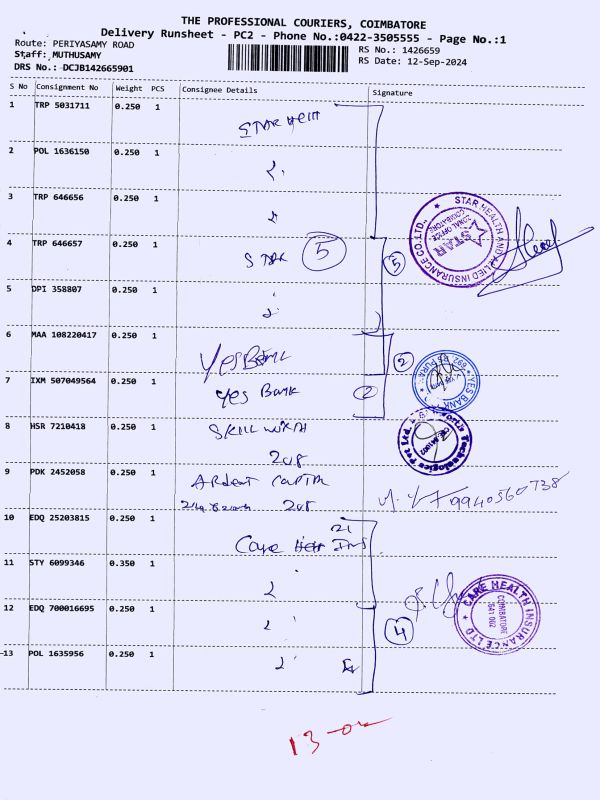 THE PROFESSIONAL COURIERS, COIMBATORE
Delivery Runsheet - PC2 - Phone No.:0422-3505555 - Page No.:1
Route: PERIYASAMY ROAD
Staff: MUTHUSAMY
DRS No.: DCJB142665901
RS No.: 1426659
RS Date: 12-Sep-2024
S No Consignment No Weight PCS Consignee Details Signature
1 TRP 5031711 0.250 1 STAR
2 POL 1636150 0.250 1
3 TRP 646656 0.250 1
4 TRP 646657 0.250 1 STAR 5 5
5 DPI 358807 0.250 1
STAR HEALTH AND ALLIED INSURANCE CO.LTD.
ZONAL OFFICE
COIMBATORE
STAR
6 MAA 108220417 0.250 1 Yes Bank 2
7 IXM 507049564 0.250 1 Yes Bank 2
YES BANK
8 HSR 7210418 0.250 1 SKILL
208
Technologies Pvt Ltd.
9 PDK 2452058 0.250 1 Ardent Capital
208 9940560738
10 EDQ 25203815 0.250 1 Care Ins
11 STY 6099346 0.350 1
12 EDQ 700016695 0.250 1 4
13 POL 1635956 0.250 1
CARE HEALTH INSURANCE LTD
COIMBATORE
641 002
13